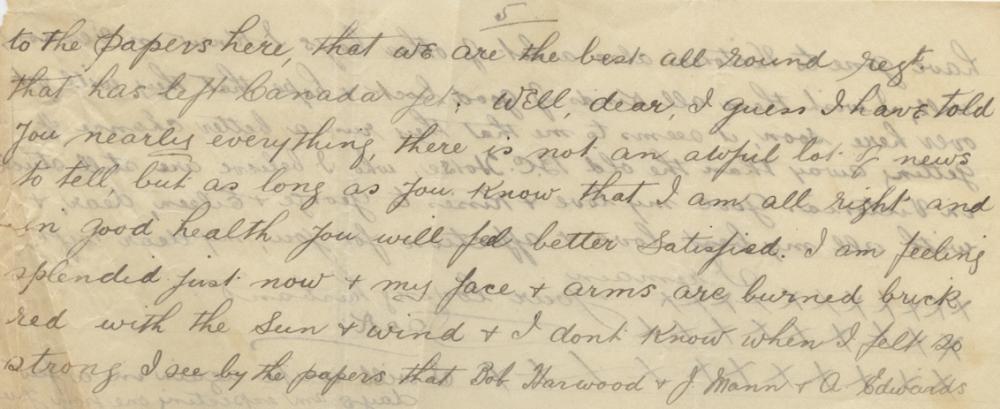 5
to the papers here, that we are the best all round regt
that has left Canada yet. Well, dear, I guess I have told
you nearly everything, there is not an awful lot of news
to tell, but as long as you know that I am all right and
in good health you will feel better satisfied. I am feeling
splendid just now + my face + arms are burned brick
red with the sun + wind + I dont know when I felt so
strong I see by the papers that Bob Harwood + J. Mann + A. Edwards